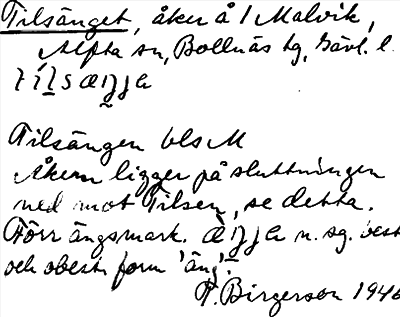 Tilsänget, åker å 1 Malvik,
Alfta sn, Bollnäs tg, Gävl. l.
Tilsängen bls M
Åkern ligger på sluttningen
ned mot Tilsen, se detta.
Förr ängsmark. n. sg. best
och obest. form 'äng'.
Birgerson 1946